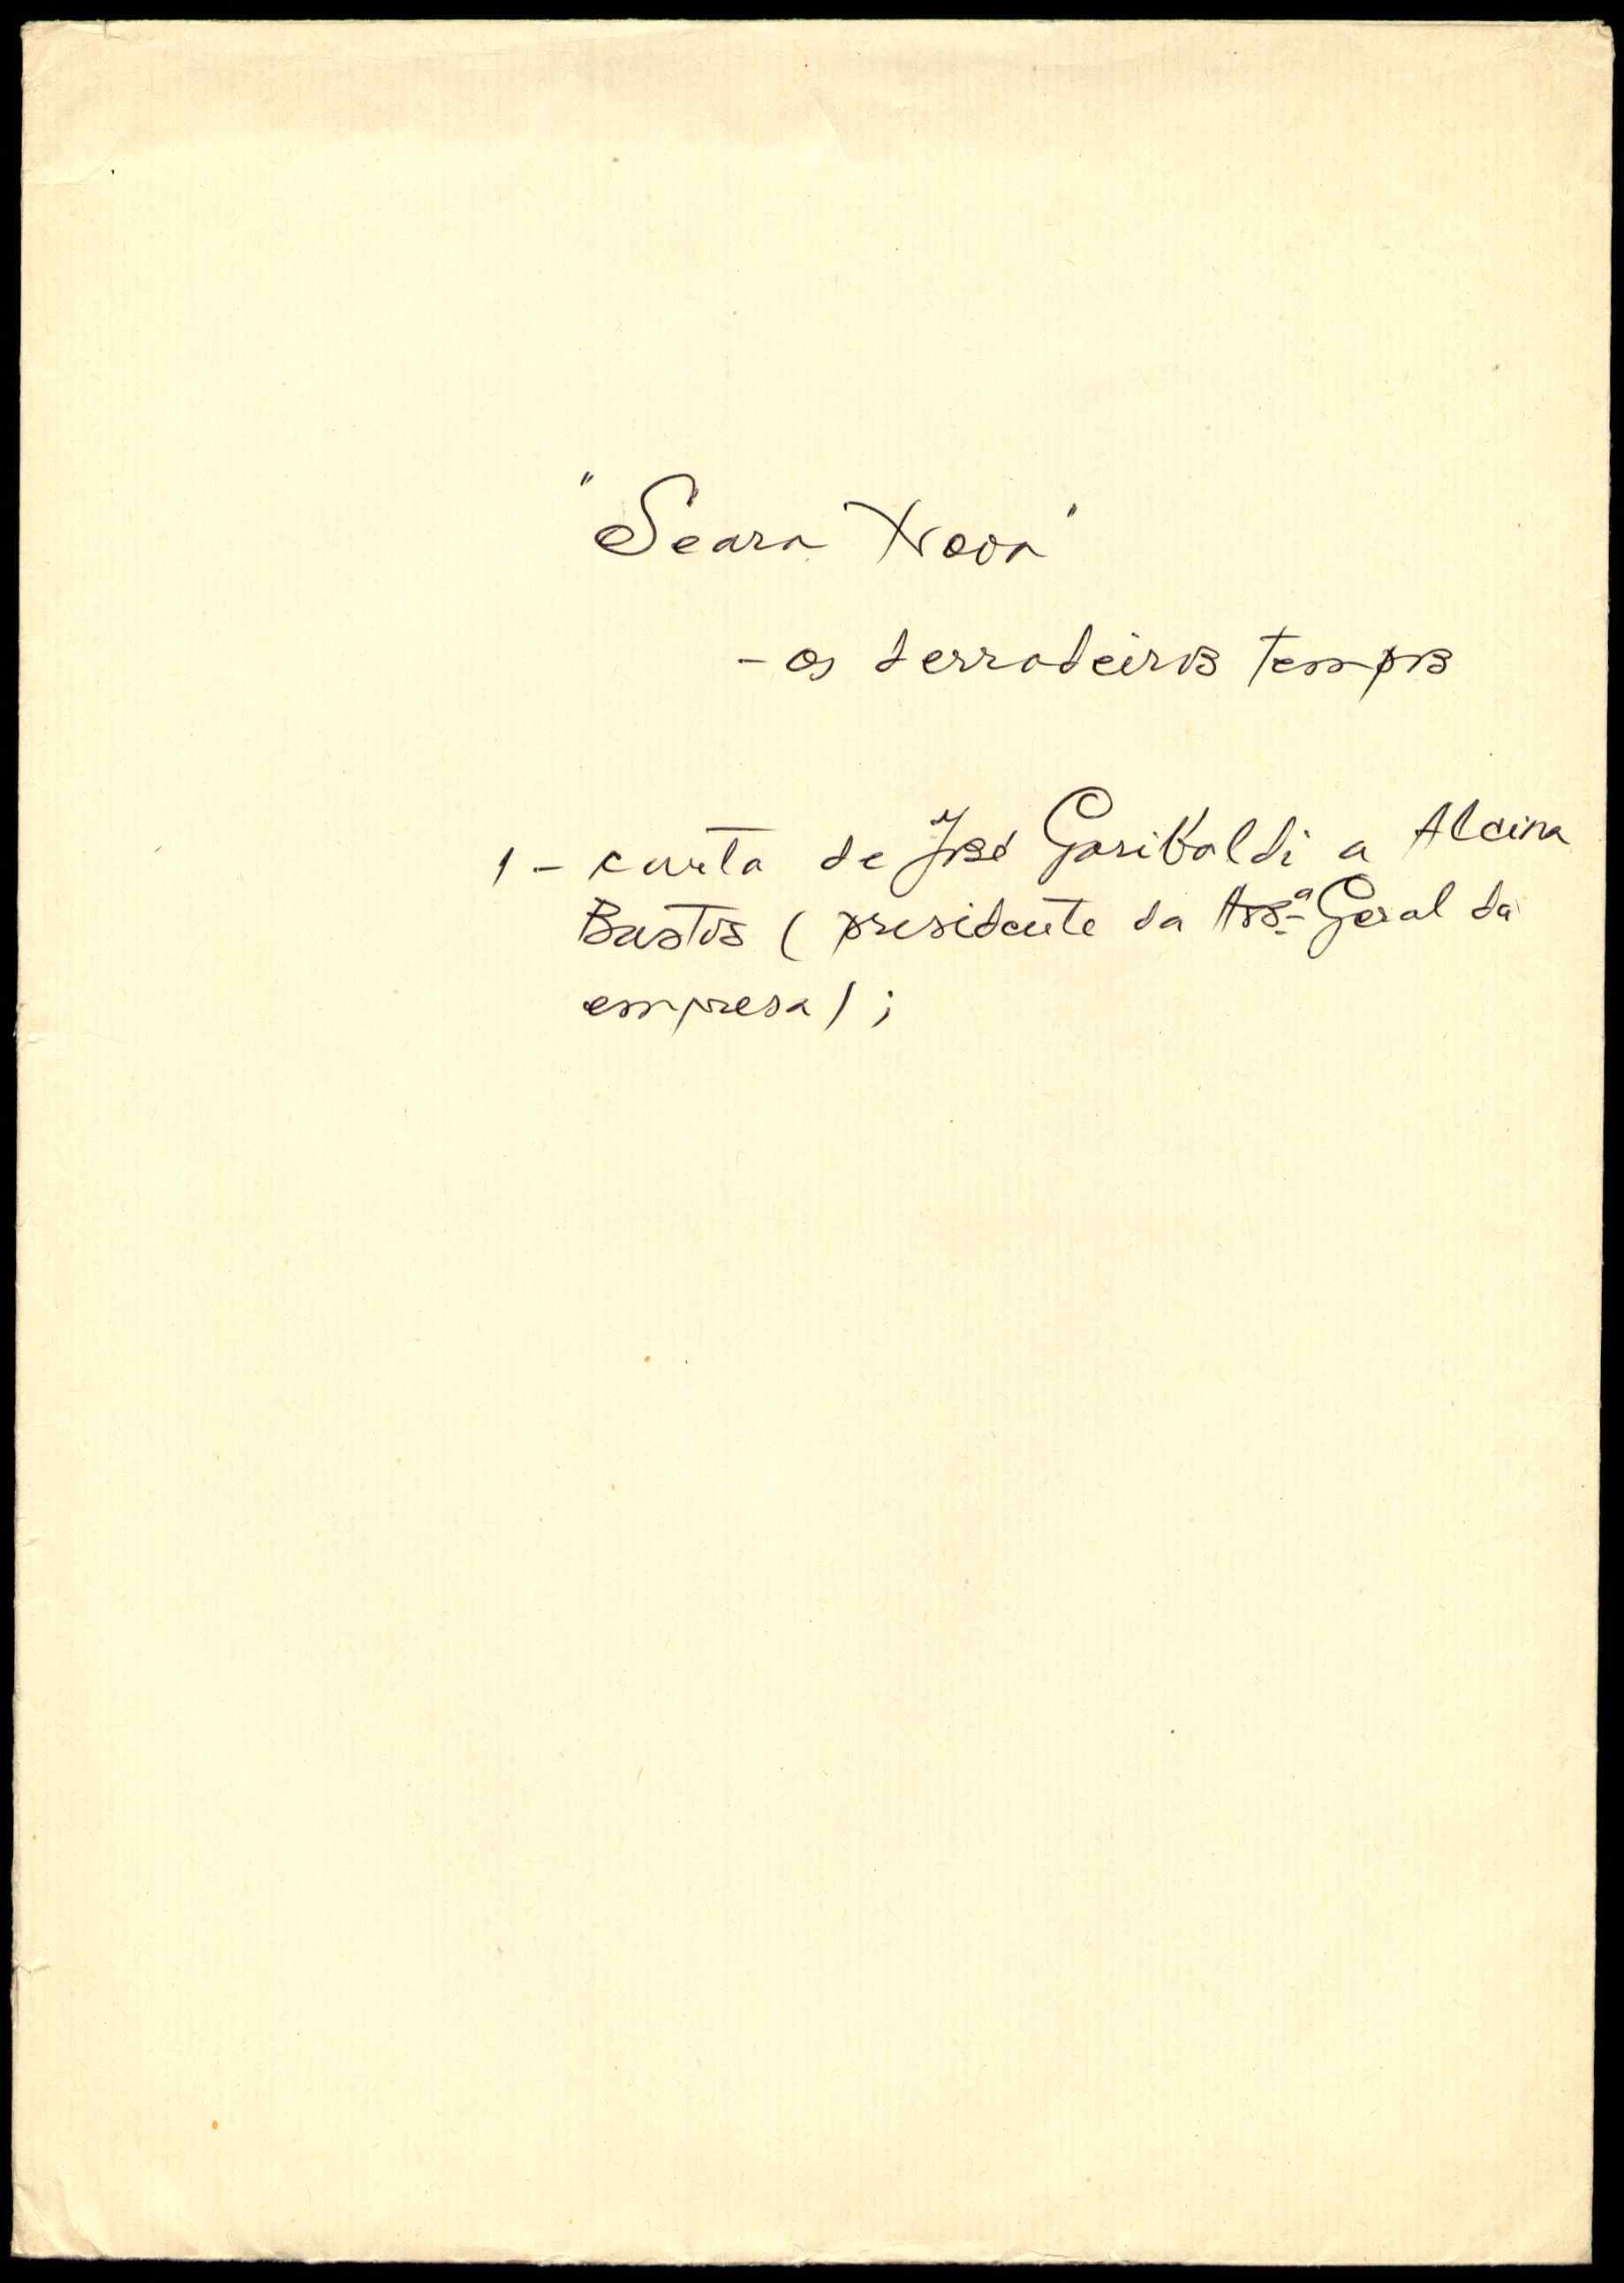 "Seara Nova"
- os derradeiros tempos
1 - carta de José Garibaldi a Alcina
Bastos (presidente da Ass.ª Geral da
empresa);